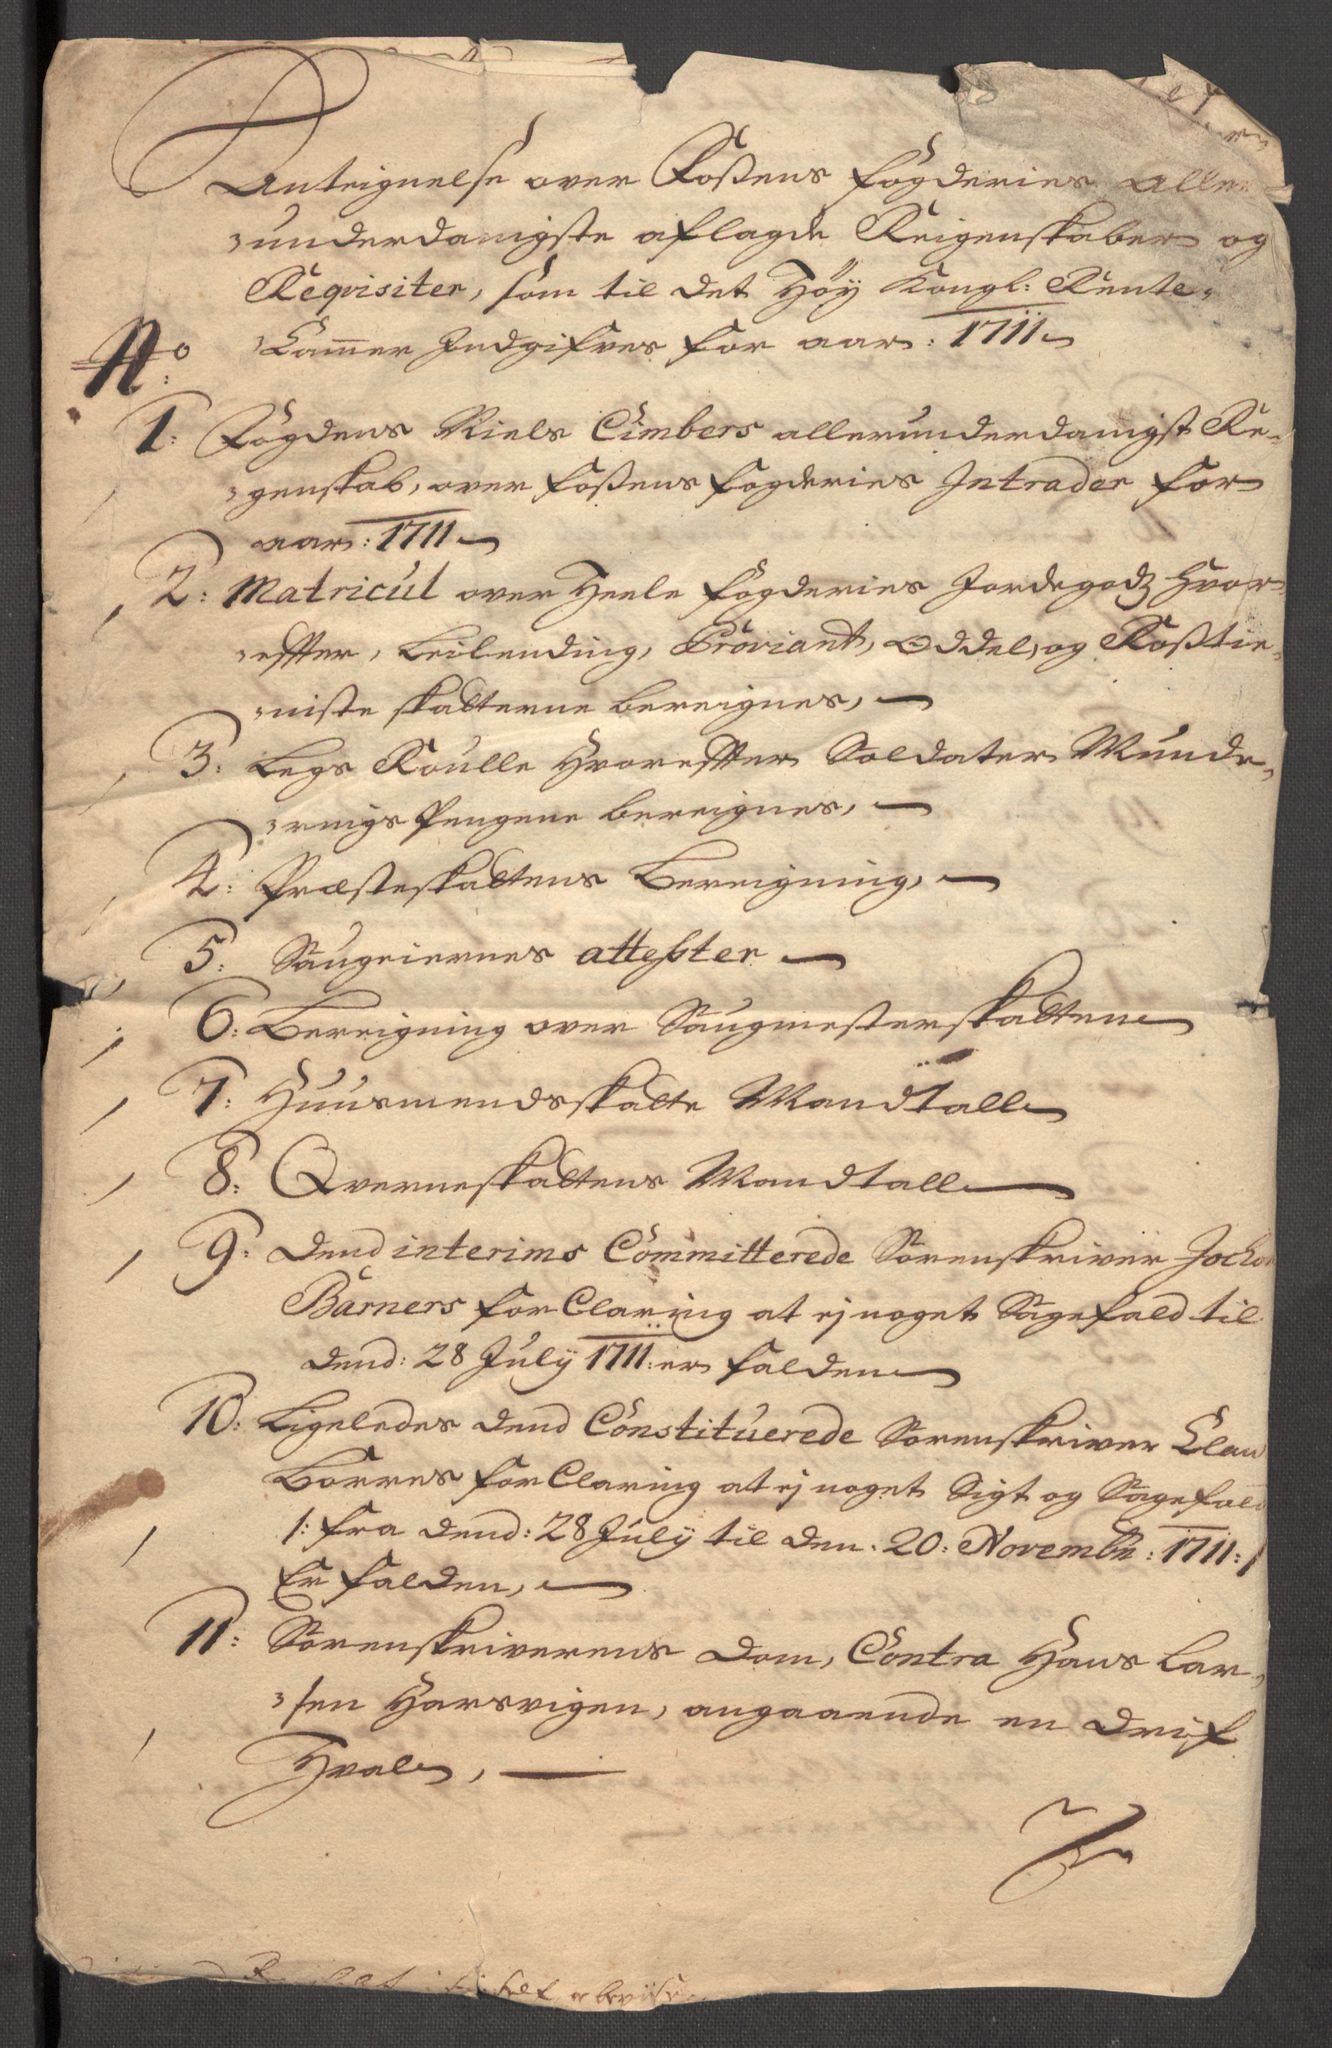 Anteignelse over Foßens Fogderies aller
underdanigste aflagde Reigenskaber og
Reqvisiter, som til det Høy Kongl: Rente
Cammer Indgifves for aar: 1711
No
1: Fogdens Niels Cimbers allerunderdanigst Re-
genskab, over Foßens Fogderies Intrader for
aar: 1711
2: Matricul over Heele Fogderies Jordegodz hvor-
effter, Leilending, Proviant, Oddel, og Roßtie-
niste skatterne bereignes,
3: Legs Roulle Hvoreffter Soldater Munde-
rings Pengene bereignes,
4: Præsteskattens Bereigning,
5: Saugeiernes attester
6: Bereigning over Saugmesterskatten
7: Huusmendsskatte Mandtall
8: Qverneskattens Mandtall
9: Dend interims Committerede Sorenskriver Jochom
Barners forClaring at ej noget Sagefald til
dend: 28 July 1711: er falden
10: Ligeledes dend Constituerede Sorenskriver Claus
Borres forClaring at ej noget Sigt og Sagefald
/: fra dend: 28 July til den. 20: Novembr: 1711: /
Er falden,
11: Sorenskriverens Dom, Contra Hans Lar-
sen Harsvigen, angaaende en drif
Hval,